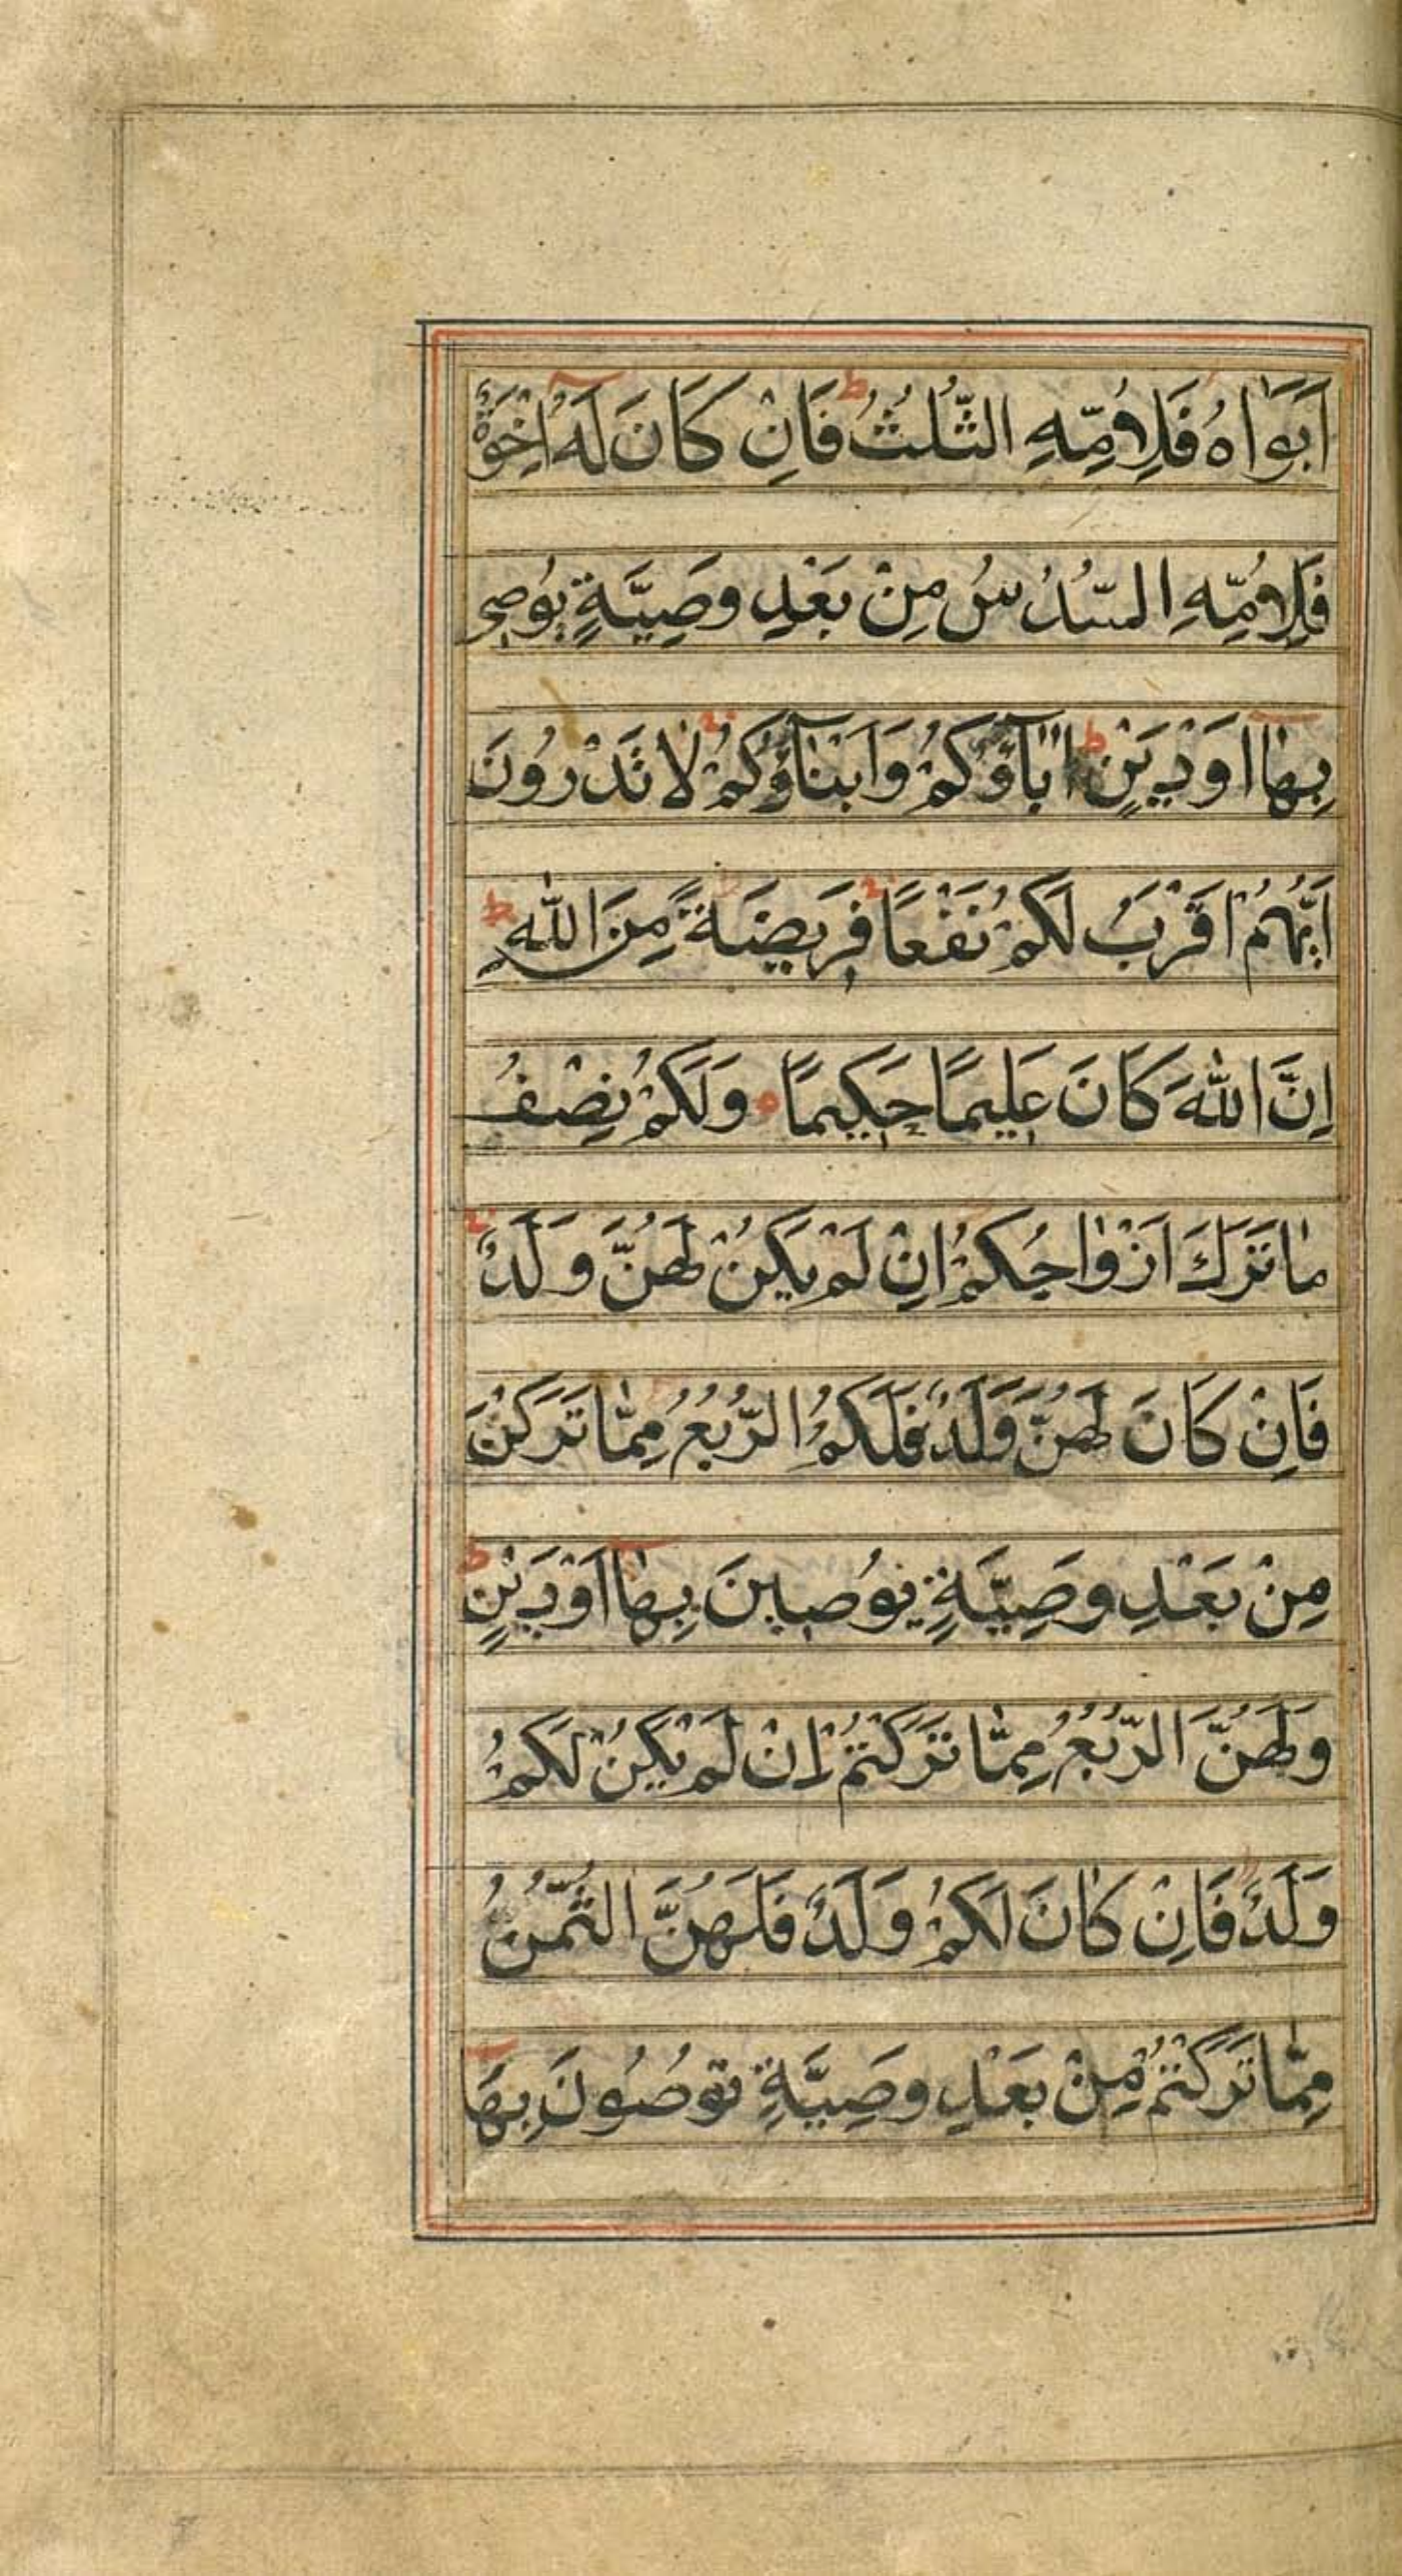 اَبَوَاهُ فَلِاُمِّهِ الثُّلُثُ ط فَاِنْ كَانَ لَهُ اِخْوَةٌ
فَلِاُمِّهِ السُّدُسُ مِنْ بَعْدِ وَصِيَّةٍ يُوصِى
بِهَا اَوْ دَيْنٍ ط اٰبَآؤُكُمْ وَاَبْنَآؤُكُمْ لَا تَدْرُونَ
اَيُّهُمْ اَقْرَبُ لَكُمْ نَفْعًا فَرِيضَةً مِنَ اللّٰهِ ط
اِنَّ اللّٰهَ كَانَ عَلِيمًا حَكِيمًا وَلَكُمْ نِصْفُ
مَا تَرَكَ اَزْوَاجُكُمْ اِنْ لَمْ يَكُنْ لَهُنَّ وَلَدٌ
فَاِنْ كَانَ لَهُنَّ وَلَدٌ فَلَكُمُ الرُّبُعُ مِمَّا تَرَكْنَ
مِنْ بَعْدِ وَصِيَّةٍ يُوصِينَ بِهَا اَوْ دَيْنٍ ط
وَلَهُنَّ الرُّبُعُ مِمَّا تَرَكْتُمْ اِنْ لَمْ يَكُنْ لَكُمْ
وَلَدٌ فَاِنْ كَانَ لَكُمْ وَلَدٌ فَلَهُنَّ الثُّمُنُ
مِمَّا تَرَكْتُمْ مِنْ بَعْدِ وَصِيَّةٍ تُوصُونَ بِهَا